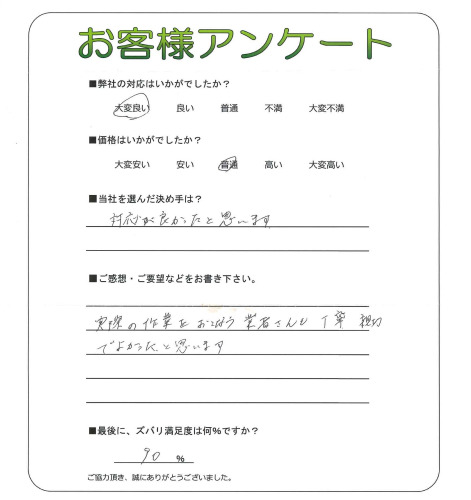 お客様アンケート
■弊社の対応はいかがでしたか?
大変良い 良い 普通 不満 大変不満
■価格はいかがでしたか?
大変安い 安い 普通 高い 大変高い
■当社を選んだ決め手は?
対応が良かったと思います
■ご感想・ご要望などをお書き下さい。
実際の作業をおこなう業者さんも丁寧親切
でよかったと思います
■最後に、ズバリ満足度は何%ですか?
90 %
ご協力頂き、誠にありがとうございました。